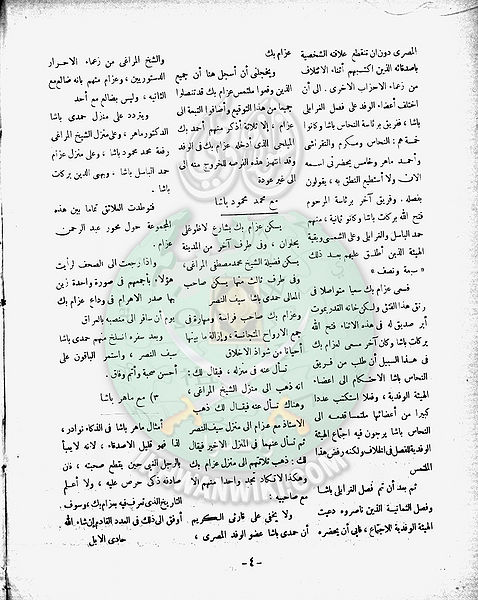 المصرى دون ان تنقطع علاقته الشخصية
باصدقائه الذين اكتسبهم أثناء الائتلاف
من زعماء الاحزاب الاخرى . الى أن
اختلف أعضاء الوفد على فصل الغرابلى
باشا ، ففريق برئاسة النحاس باشا وكانوا
خمسة هم : النحاس ومكرم والنقراشى
وأحمد ماهر وخامس يحضرنى اسمه
الان ولا أستطيع النطق به ، يقولون
بفصله . وفريق آخر برئاسة المرحوم
فتح الله بركات باشا وكانو ثمانية ، منهم
حمد الباسل والغرابلى وعلى الشمسى وبقية
الهيئة الذين أطلق عليهم بعد ذلك
« سبعة ونصف »
فسعى عزام بك سعيا متواصلا فى
رتق هذا الفتق ولكن خانه القدر بموت
أبر صديق له فى هذه الاثناء فتح الله
بركات باشا وكان آخر مسعى لعزام بك
فى هذا السبيل أن طلب من فريق
النحاس باشا الاحتكام الى اعضاء
الهيئة الوفدية ، وفعلا استكتب عددا
كبيرا من أعضائها ملتمسا قدمه الى
النحاس باشا يرجون فيه اجتماع الهيئة
الوفدية للفصل فى الخلاف ولكنه رفض هذا
الملتمس
ثم بعد أن تم فصل الغرابلى باشا
وفصل الثمانية الذين ناصروه دعيت
الهيئة الوفدية للاجتماع ، فابى أن يحضره
عزام بك
ويخجلنى أن أسجل هنا أن جميع
الذين وقعوا ملتمس عزام بك قد تنصلوا
جميعا من هذا التوقيع وأضافوا التبعة الى
عزام ، إلا ثلاثة أذكر منهم أحمد بك
المليحى الذى أدخله عزام بك فى الوفد
وقد انتهز هذه الفرصة للخروج منه الى
الى غير عودة
مع محمد محمود باشا
يسكن عزام بك بشارع لاظوغلى
بحلوان ، وفى طرف آخر من المدينة
يسكن فضيلة الشيخ محمد مصطفى المراغى ،
وفى طرف ثالث منها يسكن صاحب
المعالى حمدى باشا سيف النصر
وعزام بك صاحب فراسة ومهارة فى
جمع الارواح المتجانسة ، وإزالة ما بينها
أحيانا من شواذ الاخلاق
تسأل عنه فى منزله ، فيقال لك :
انه ذهب الى منزل الشيخ المراغى ،
وهناك تسأل عنه فيقال لك ذهب
الاستاذ مع عزام الى منزل سيف النصر
ثم تسأل عنهما فى المنزل الاخير فيقال
لك : ذهب ثلاثتهم الى منزل عزام بك
وهكذا لا تكاد تجد واحدا منهم الا
مع صاحبيه :
ولا يخفى على قارئى الكريم
أن حمدى باشا عضو الوفد المصرى ،
والشيخ المراغى من زعماء الاحرار
الدستوريين ، وعزام متهم بانه ضالع مع
الثانيه ، وليس بضالع مع أحد
ويتردد على منزل حمدى باشا
الدكتور ماهر ، وعلى منزل الشيخ المراغى
رفعة محمد محمود باشا ، وعلى منزل عزام
حمد الباسل باشا . وبهى الدين بركات
باشا .
فتوطدت العلائق تماما بين هذه
المجموعة حول محور عبد الرحمن
عزام .
واذا رجعت الى الصحف لرأيت
هؤلاء بأجمعهم فى صورة واحدة زين
بها صدر الاهرام فى وداع عزام بك
يوم أن سافر الى منصبه بالعراق
وبعد سفره انسلخ منهم حمدى باشا
سيف النصر ، واستمر الباقون على
أحسن صحبة وأتم وفاق .
٣) مع ماهر باشا
أمثال ماهر باشا فى الذكاء نوادر ،
لذا فهو قليل الاصدقاء ، لانه لا يعبأ
بالرجل الى حين يقطع صحبته ، فان
صادفه ذكى حرص عليه ، ولا أعلم
التاريخ الذى تعرف فيه بعزام بك ، وسوف .
أوفق الى ذلك فى العدد القادم إن شاء الله .
حادى الابل
- ٤ -